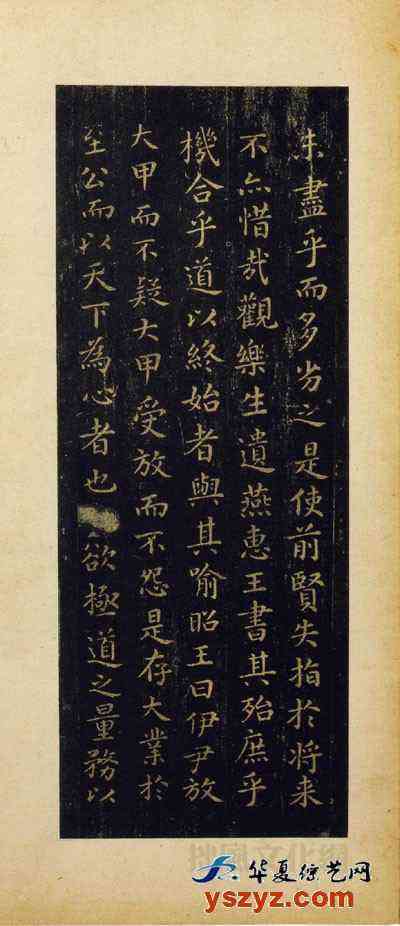 未盡乎而多劣之是使前賢失指於将来
不亦惜哉觀樂生遺燕惠王書其殆庶乎
機合乎道以終始者與其喻昭王曰伊尹放
大甲而不疑大甲受放而不怨是存大業於
至公而以天下為心者也欲極道之量務以
华夏综艺网
yszyz.com